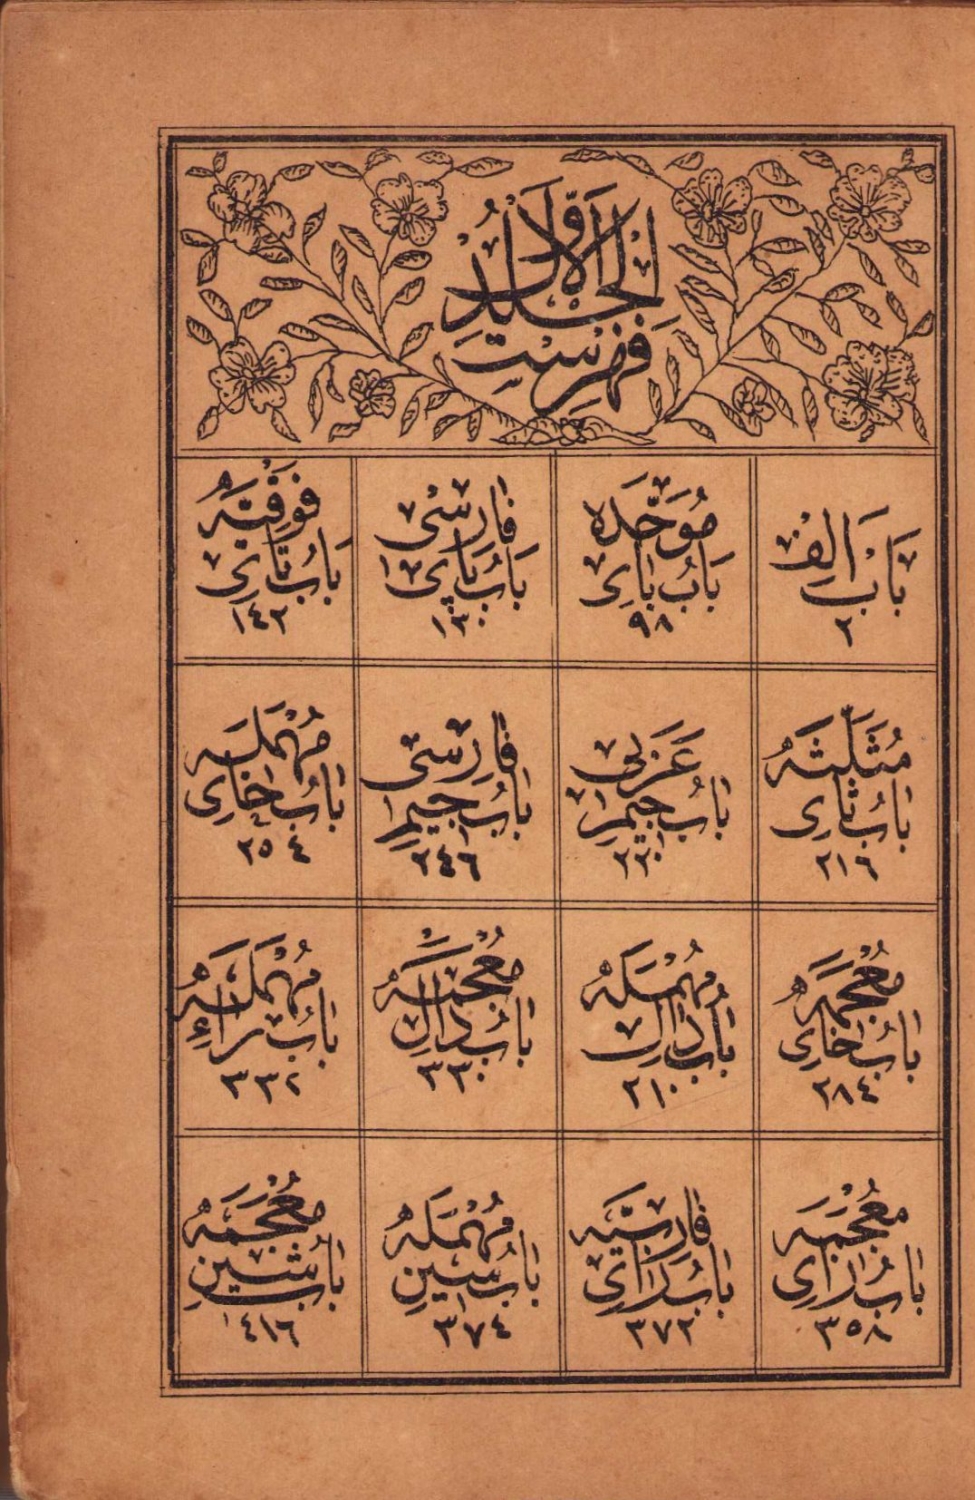 فهرست
الجلد الاول
باب الف
٢
باب باى
موحده
٩٨
باب پاى
فارسى
١٣٠
باب تاى
فوقيه
١٤٢
باب ثاى
مثلثه
٢١٦
باب جيم
عربى
٢٢٠
باب جيم
فارسى
٢٤٦
باب حاى
مهمله
٢٥٤
باب خاى
معجمه
٢٨٤
باب دال
مهمله
٣١٠
باب ذال
معجمه
٣٣٠
باب راء
مهمله
٣٣٢
باب زاى
معجمه
٣٥٨
باب زاى
فارسيه
٣٧٢
باب سين
مهمله
٣٧٤
باب شين
معجمه
٤١٦